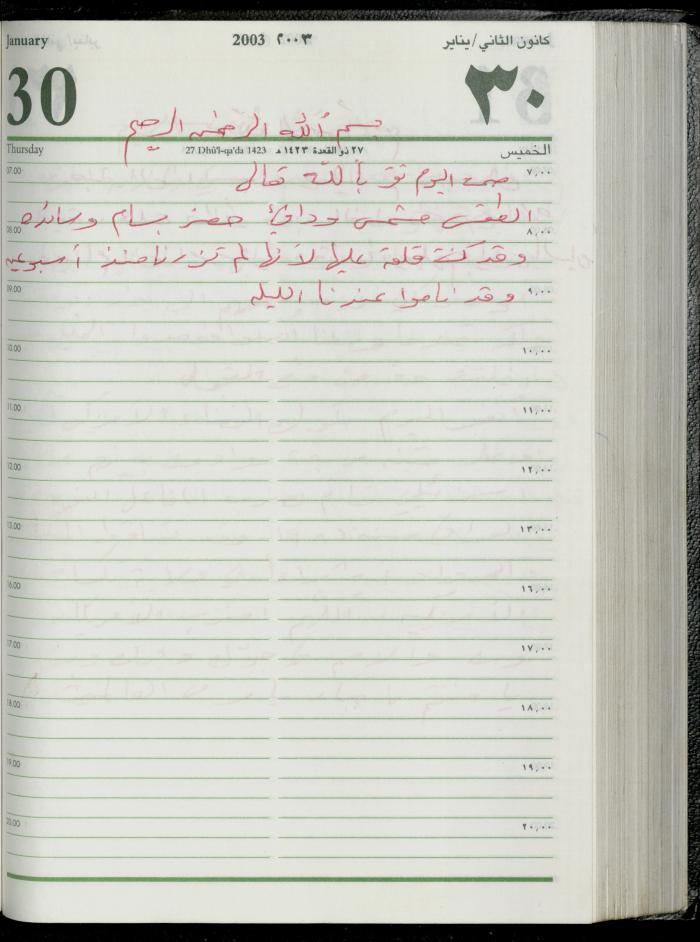 January 2003 ٢٠٠٣ كانون الثاني/يناير
30 ٣٠
بسم الله الرحمن الرحيم
Thursday 27 Dhū'l-qa'da 1423 ٢٧ ذو القعدة ١٤٢٣ هـ الخميس
07.00 ٧,٠٠
اليوم بالله
الطقس مشمس ودافئ حضر بسام وسائده
08.00 ٨,٠٠
وقد كنت قلقة عليها لأنها لم تزرنا منذ أسبوعين
09.00 ٩,٠٠
وقد ناموا عندنا الليله
10.00 ١٠,٠٠
11.00 ١١,٠٠
12.00 ١٢,٠٠
13.00 ١٣,٠٠
16.00 ١٦,٠٠
17.00 ١٧,٠٠
18.00 ١٨,٠٠
19.00 ١٩,٠٠
20.00 ٢٠,٠٠